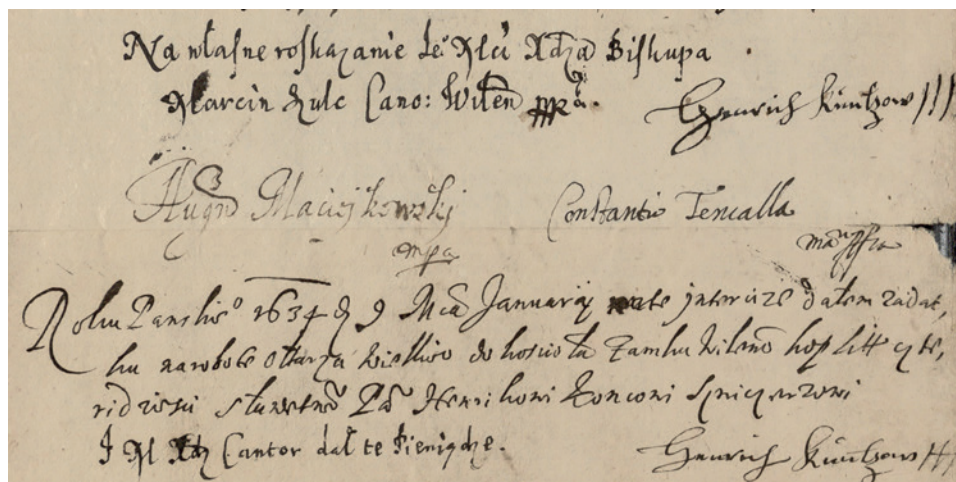 Na własne roskazanie Je Mci Xdza Biskupa
Marcin Zulc Cano: Wilen mpr.
Henrich Küntzow
August Maciejkowskj
mpa
Constantio Tencalla
manu ppra
Roku Panskie° 1634 d 9 Mca Januarij na te intercize dałem zadat,
ku na robote ołtarza wielkie° do koscioła Zamku Wilen° kop litt
sławetne° Pa° Henrikowi Konconi snicyerzowi
J M Xdz Cantor dał te Pieniądze.
Henrich Küntzow